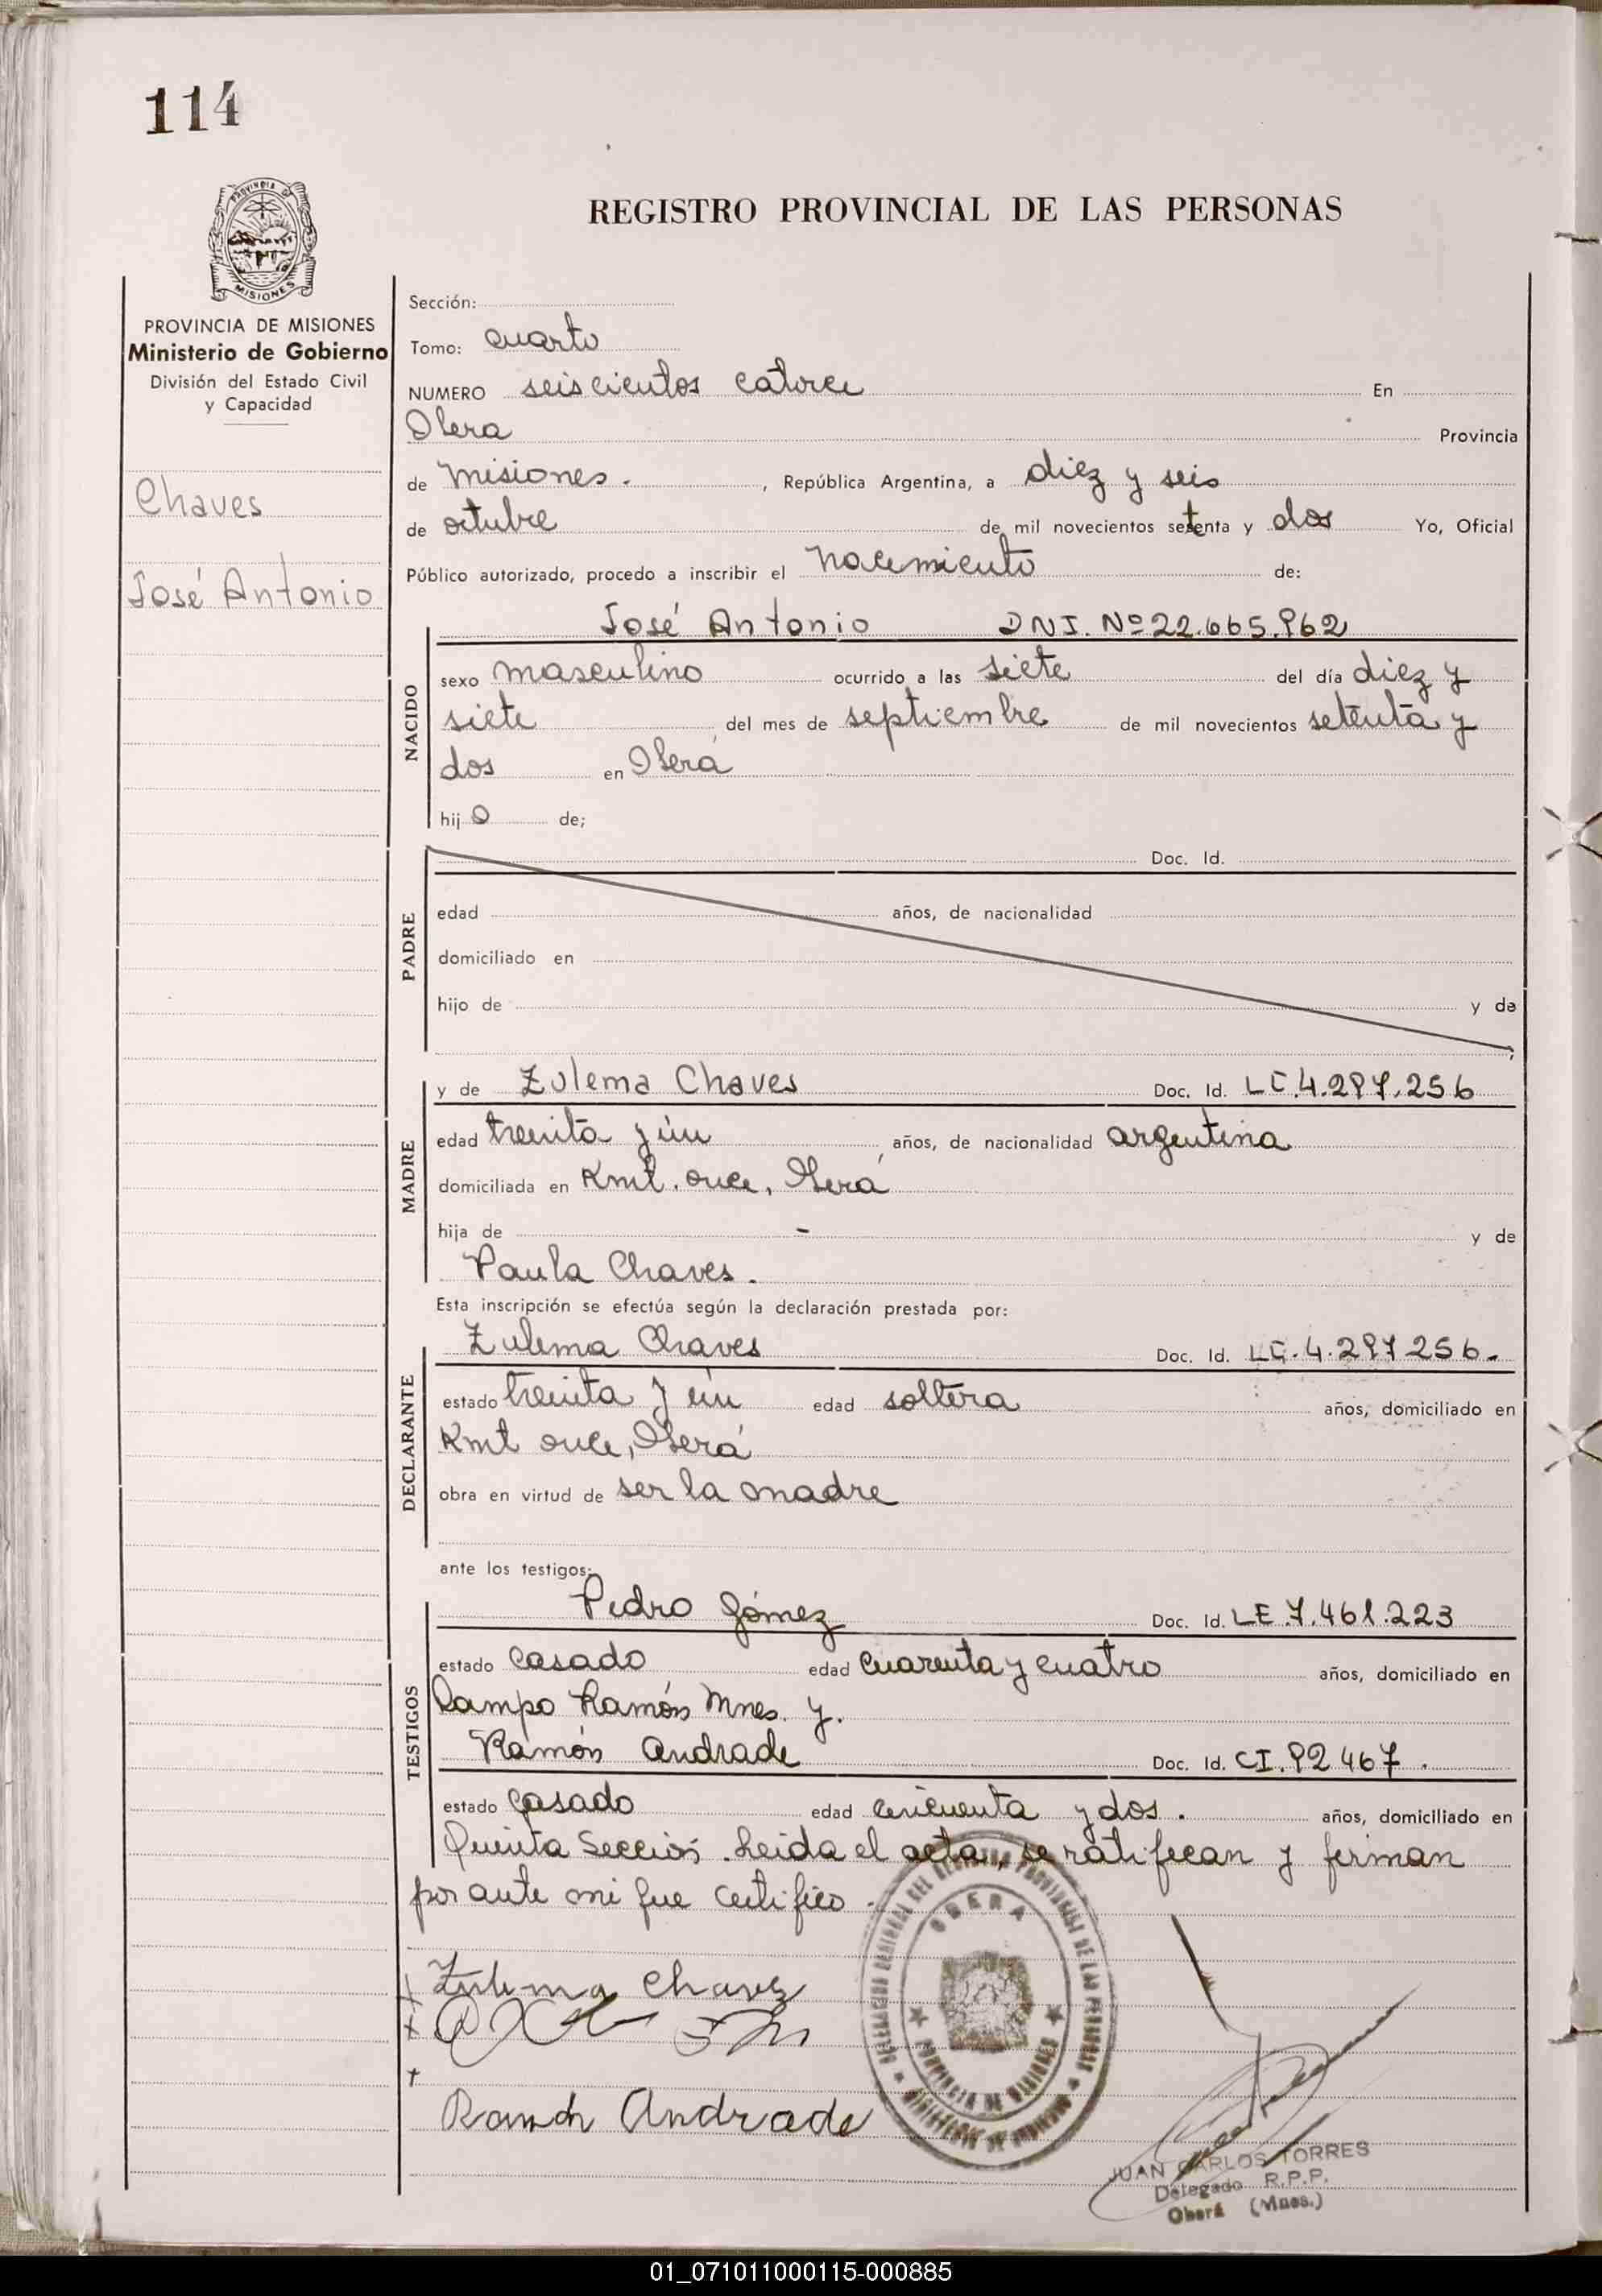 114
PROVINCIA DE
MISIONES
REGISTRO PROVINCIAL DE LAS PERSONAS
PROVINCIA DE MISIONES
Ministerio de Gobierno
División del Estado Civil
y Capacidad
Chaves
José Antonio
Sección:
Tomo: cuarto
NUMERO seiscientos catorce En
Obera Provincia
de Misiones. , República Argentina, a diez y seis
de octubre de mil novecientos setenta y dos Yo, Oficial
Público autorizado, procedo a inscribir el nacimiento de:
NACIDO
José Antonio DNI. Nº 22.665.962
sexo masculino ocurrido a las siete del día diez y
siete del mes de septiembre de mil novecientos setenta y
dos en Oberá
hij o de;
PADRE
Doc. Id.
edad años, de nacionalidad
domiciliado en
hijo de y de
MADRE
y de Zulema Chaves Doc. Id. LC.4.297.256
edad treinta y ún años, de nacionalidad argentina
domiciliada en Kmt. once, Oberá
hija de - y de
Paula Chaves.
Esta inscripción se efectúa según la declaración prestada por:
DECLARANTE
Zulema Chaves Doc. Id. LC.4.297256.
estado treinta y ún edad soltera años, domiciliado en
Kmt once, Oberá
obra en virtud de ser la madre
ante los testigos:
TESTIGOS
Pedro Gómez Doc. Id. LE 7.461.223
estado casado edad cuarenta y cuatro años, domiciliado en
Campo Ramón Mnes. y.
Ramón Andrade Doc. Id. CI.92467.
estado casado edad cincuenta y dos. años, domiciliado en
Quinta Sección. Leida el acta, se ratifican y firman
por ante mi que certifico.
Zulema Chavez
Andrade
DELEGACION REGIONAL DEL REGISTRO PROVINCIAL DE LAS PERSONAS
OBERA
PROVINCIA DE MISIONES
MINISTERIO DE GOBIERNO
JUAN CARLOS TORRES
Delegado R.P.P.
Oberá (Mnes.)
01_071011000115-000885